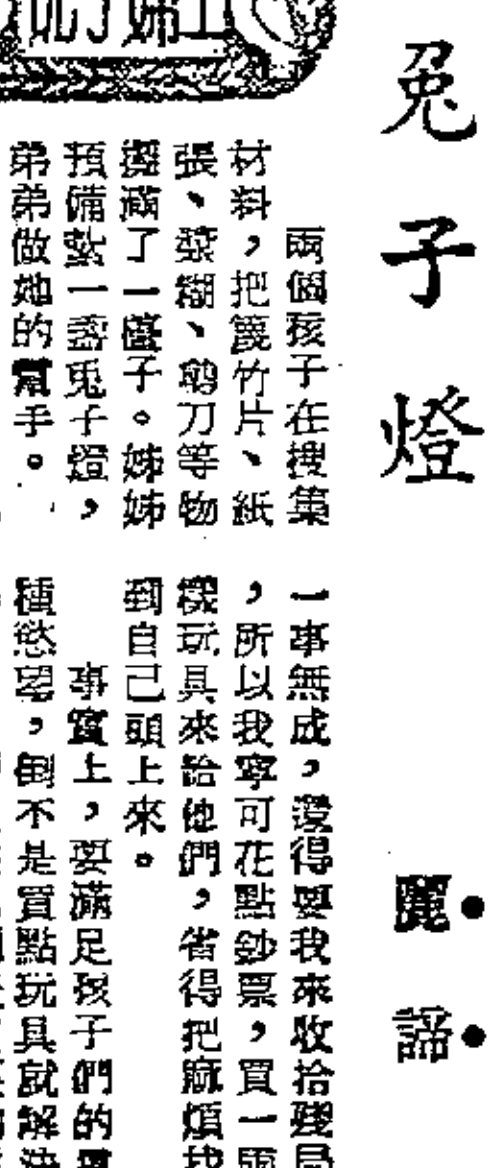 兔子燈
麗諦
兩個孩子在搜集
材料,把篾竹片、紙
張、漿糊、剪刀等物
擺滿了一檯子。姊姊
預備紮一盞兎子燈,
弟弟做她的幫手。
一事無成,還得要我來收拾殘局
,所以我寧可花點鈔票,買一兩
樣玩具來給他們,省得把麻煩找
到自己頭上來。
事實上,要滿足孩子們的
種慾望,倒不是買點玩具就解決